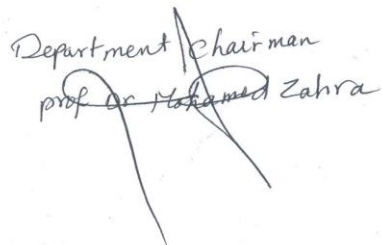 Department Chairman
prof Dr Mohamed Zahra